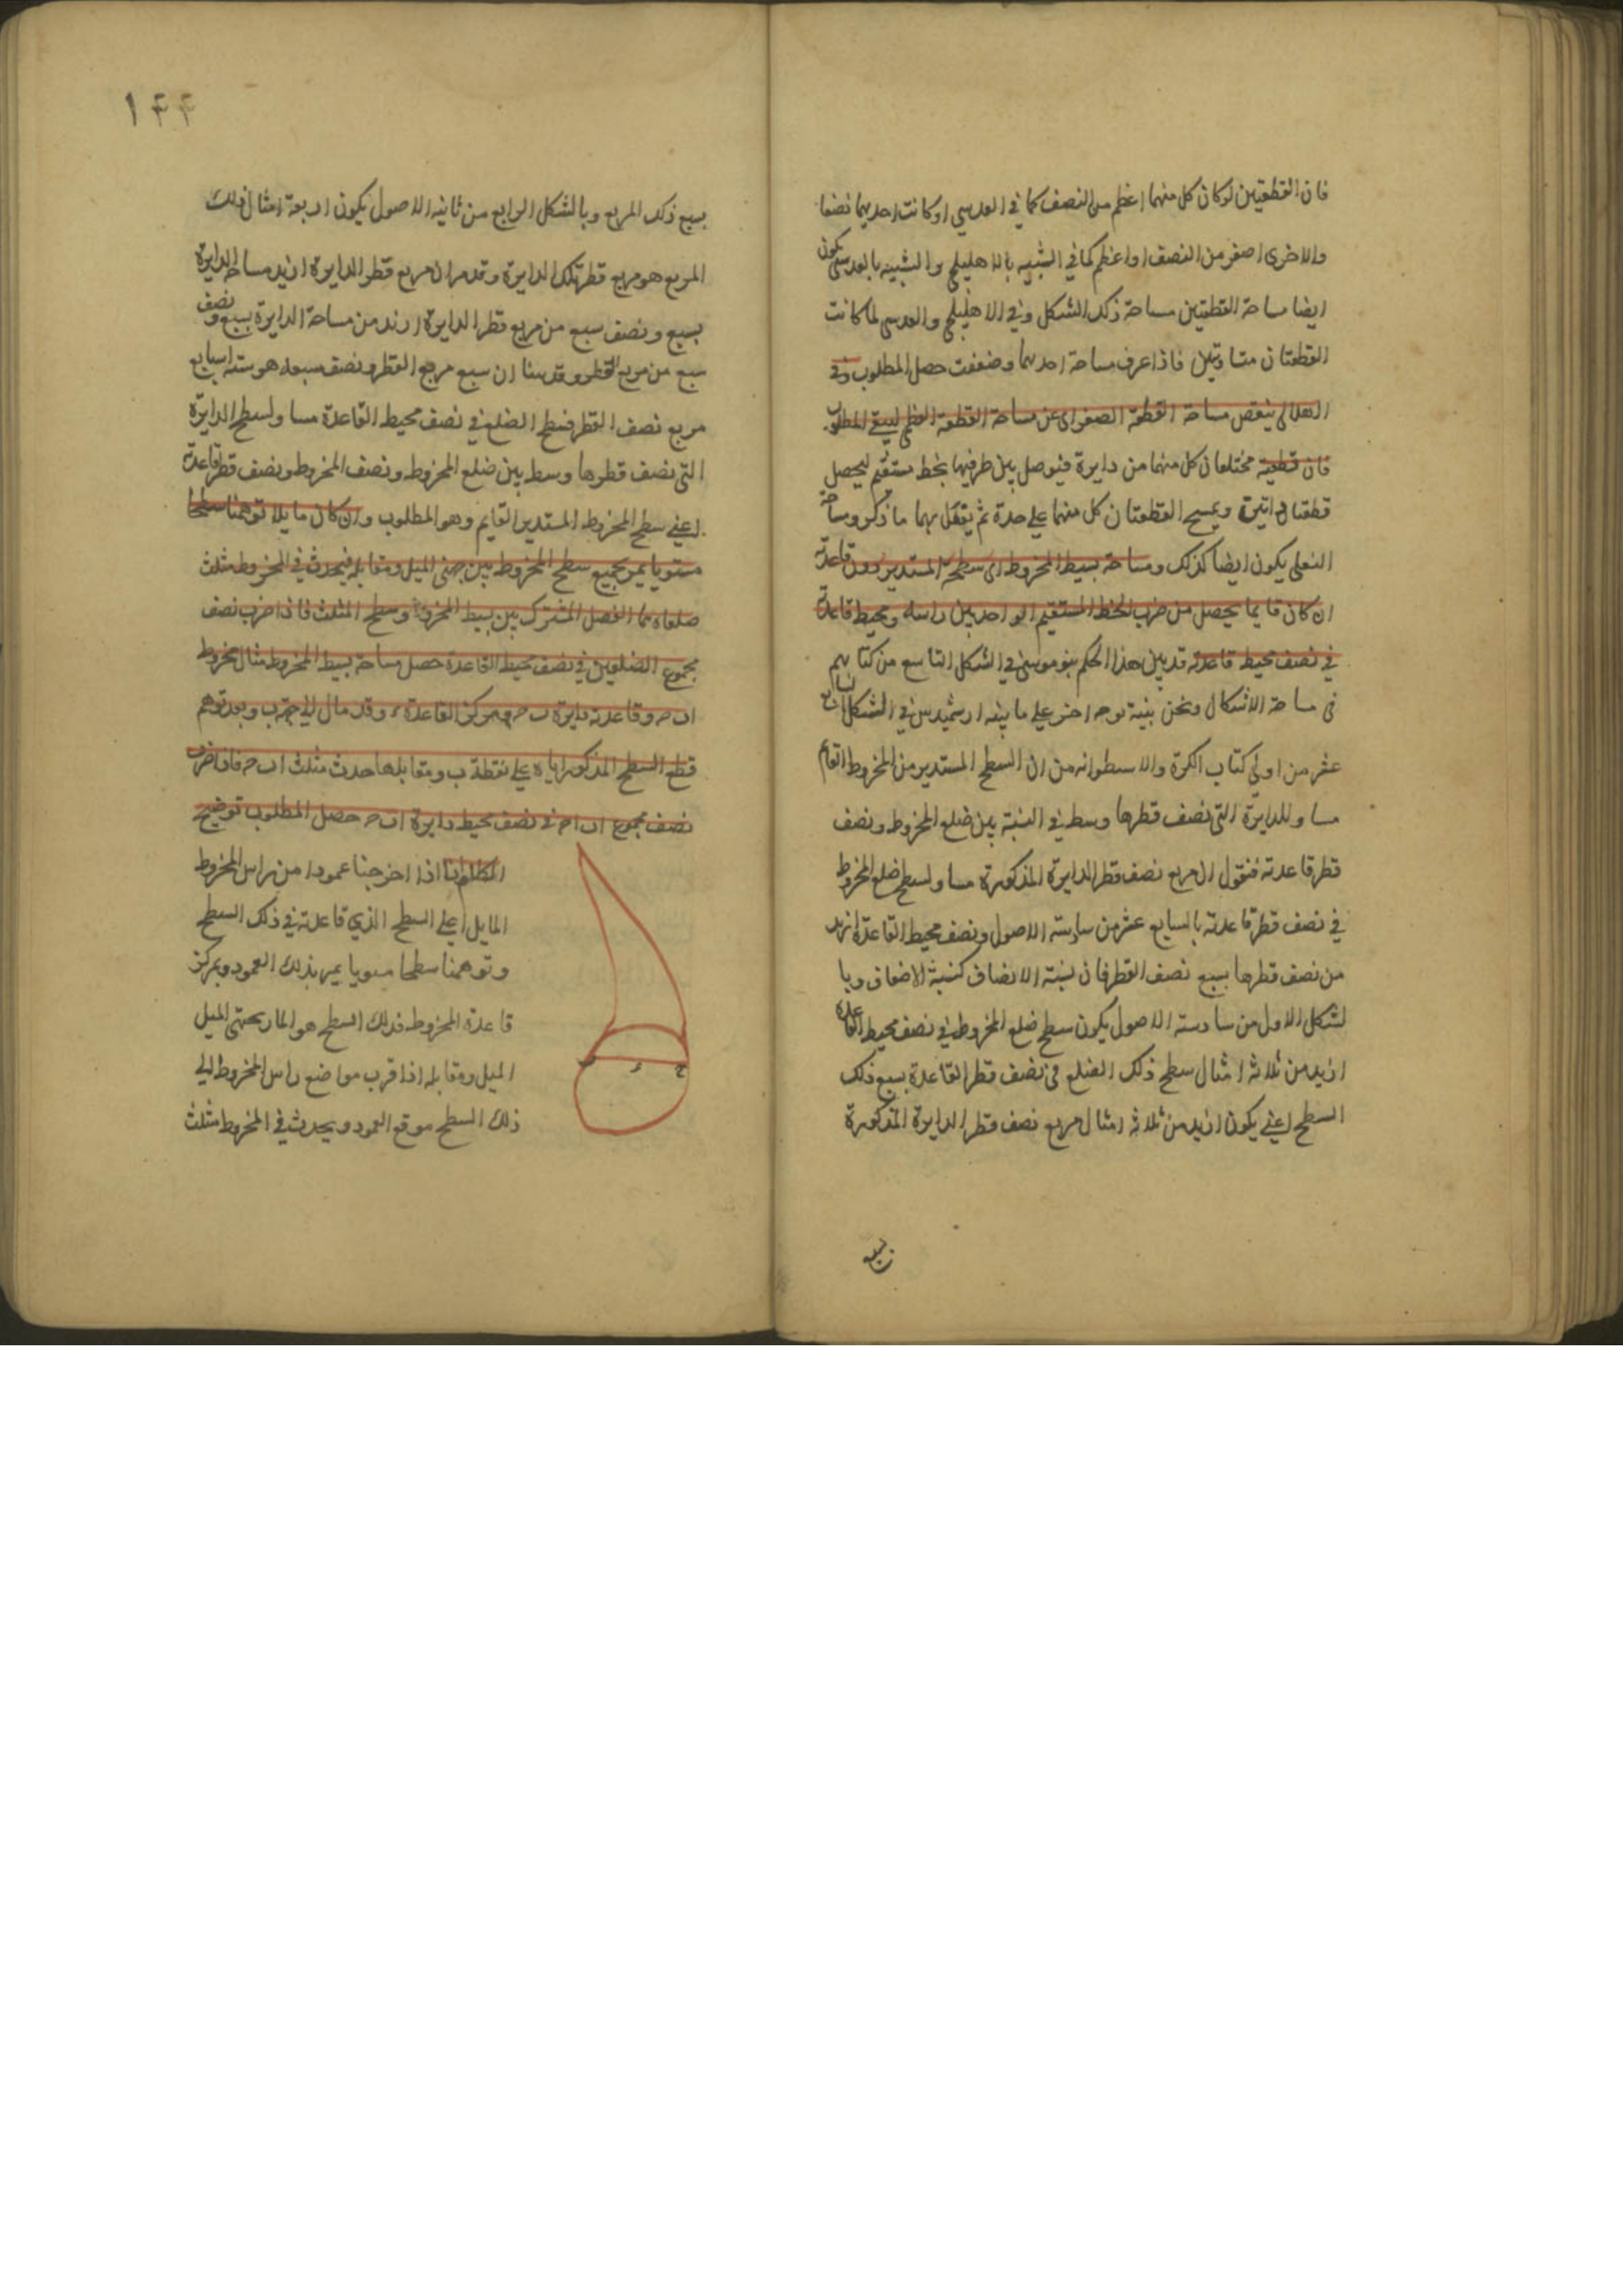 فان القطعتين لو كان كل منهما اعظم من النصف كما في العدسي او كانت احديهما نصفا
والاخرى اصغر من النصف او اعظم كما في الشبيه بالاهليلجي والشبيه بالعدسي يكون
ايضا مساحة القطعتين مساحة ذلك الشكل وفي الاهليلجي والعدسي لما كانت
القطعتان متساويتين فاذا عرف مساحة احديهما وضعفت حصل المطلوب وفي
الهلالي ينقص مساحة القطعة الصغرى عن مساحة القطعة العظمى ليبقى المطلوب
فان قطعتيه مختلفان كل منهما من دايرة فنوصل بين طرفيها بخط مستقيم ليحصل
قطعتا دايرة ويمسح القطعتان كل منهما على حدة ثم يفعل بهما ما ذكر ومساحة
النعلي يكون ايضا كذلك ومساحة بسيط المخروط اى سطحه المستدير دون قاعدته
ان كان قايما يحصل من ضرب الخط المستقيم الواحد بين راسه ومحيط قاعدته
في نصف محيط قاعدته قد بين هذا الحكم بنو موسى في الشكل التاسع من كتابهم
في مساحة الاشكال ونحن نبينه بوجه اخر على ما بينه ارشميدس في الشكل الرابع
عشر من اولى كتاب الكرة والاسطوانه من ان السطح المستدير من المخروط القايم
مساو للدايرة التي نصف قطرها وسط في النسبة بين ضلع المخروط ونصف
قطر قاعدته فنقول ان مربع نصف قطر الدايرة المذكورة مساو لسطح ضلع المخروط
في نصف قطر قاعدته بالسابع عشر من سادسة الاصول ونصف محيط القاعدة ازيد
من نصف قطرها بسبع نصف القطر فان نسبة الانصاف كنسبة الاضعاف وبا
لشكل الاول من سادسة الاصول يكون سطح ضلع المخروط في نصف محيط القاعدة
ازيد من ثلاثة امثال سطح ذلك الضلع في نصف قطر القاعدة بسبع ذلك
السطح اعني يكون ازيد من ثلاثة امثال مربع نصف قطر الدايرة المذكورة
بسبع
١٤٤
بسبع ذلك المربع وبالشكل الرابع من ثانية الاصول يكون اربعة امثال ذلك
المربع هو مربع قطر تلك الدايرة وقد مر ان مربع قطر الدايرة ازيد مساحة الدايرة
بسبع ونصف سبع من مربع قطر الدايرة ازيد من مساحة الدايرة بسبع ونصف
سبع من مربع القطر وقد بينا ان سبع مربع القطر ونصف سبعه هو ستة اسباع
مربع نصف القطر فسطح الضلع في نصف محيط القاعدة مساو لسطح الدايرة
التي نصف قطرها وسط بين ضلع المخروط ونصف المخروط ونصف قطر قاعدته
اعني سطح المخروط المستدير القايم وهو المطلوب وان كان مايلا توهمنا سطحا
مستويا يمر بجميع سطح المخروط بين جهتى الميل ومقابله فيحدث في المخروط مثلث
ضلعاه هما الفصل المشترك بين بسيط المخروط وسطح المثلث فاذا ضرب نصف
مجموع الضلعين في نصف محيط القاعدة حصل مساحة بسيط المخروط مثاله مخروط
ا ب ح وقاعدته دايرة ب ح ومركز القاعدة ء وقد مال الى جهة ب وبعد توهم
قطع السطح المذكور اياه على نقطة ب ومقابلها حدث مثلث ا ب ح فاذا ضرب
نصف مجموع ا ب ا ح في نصف محيط دايرة ا ب ح حصل المطلوب توضيح
المطلوب انا اذا اخرجنا عمودا من راس المخروط
المايل على السطح الذي قاعدته في ذلك السطح
وتوهمنا سطحا مستويا يمر بذلك العمود وبمركز
قاعدة المخروط فذلك السطح هو المار بجهتى الميل
الميل ومقابله اذا قرب مواضع راس المخروط الى
ذلك السطح موقع العمود ويحدث في المخروط مثلث
ب ء ح